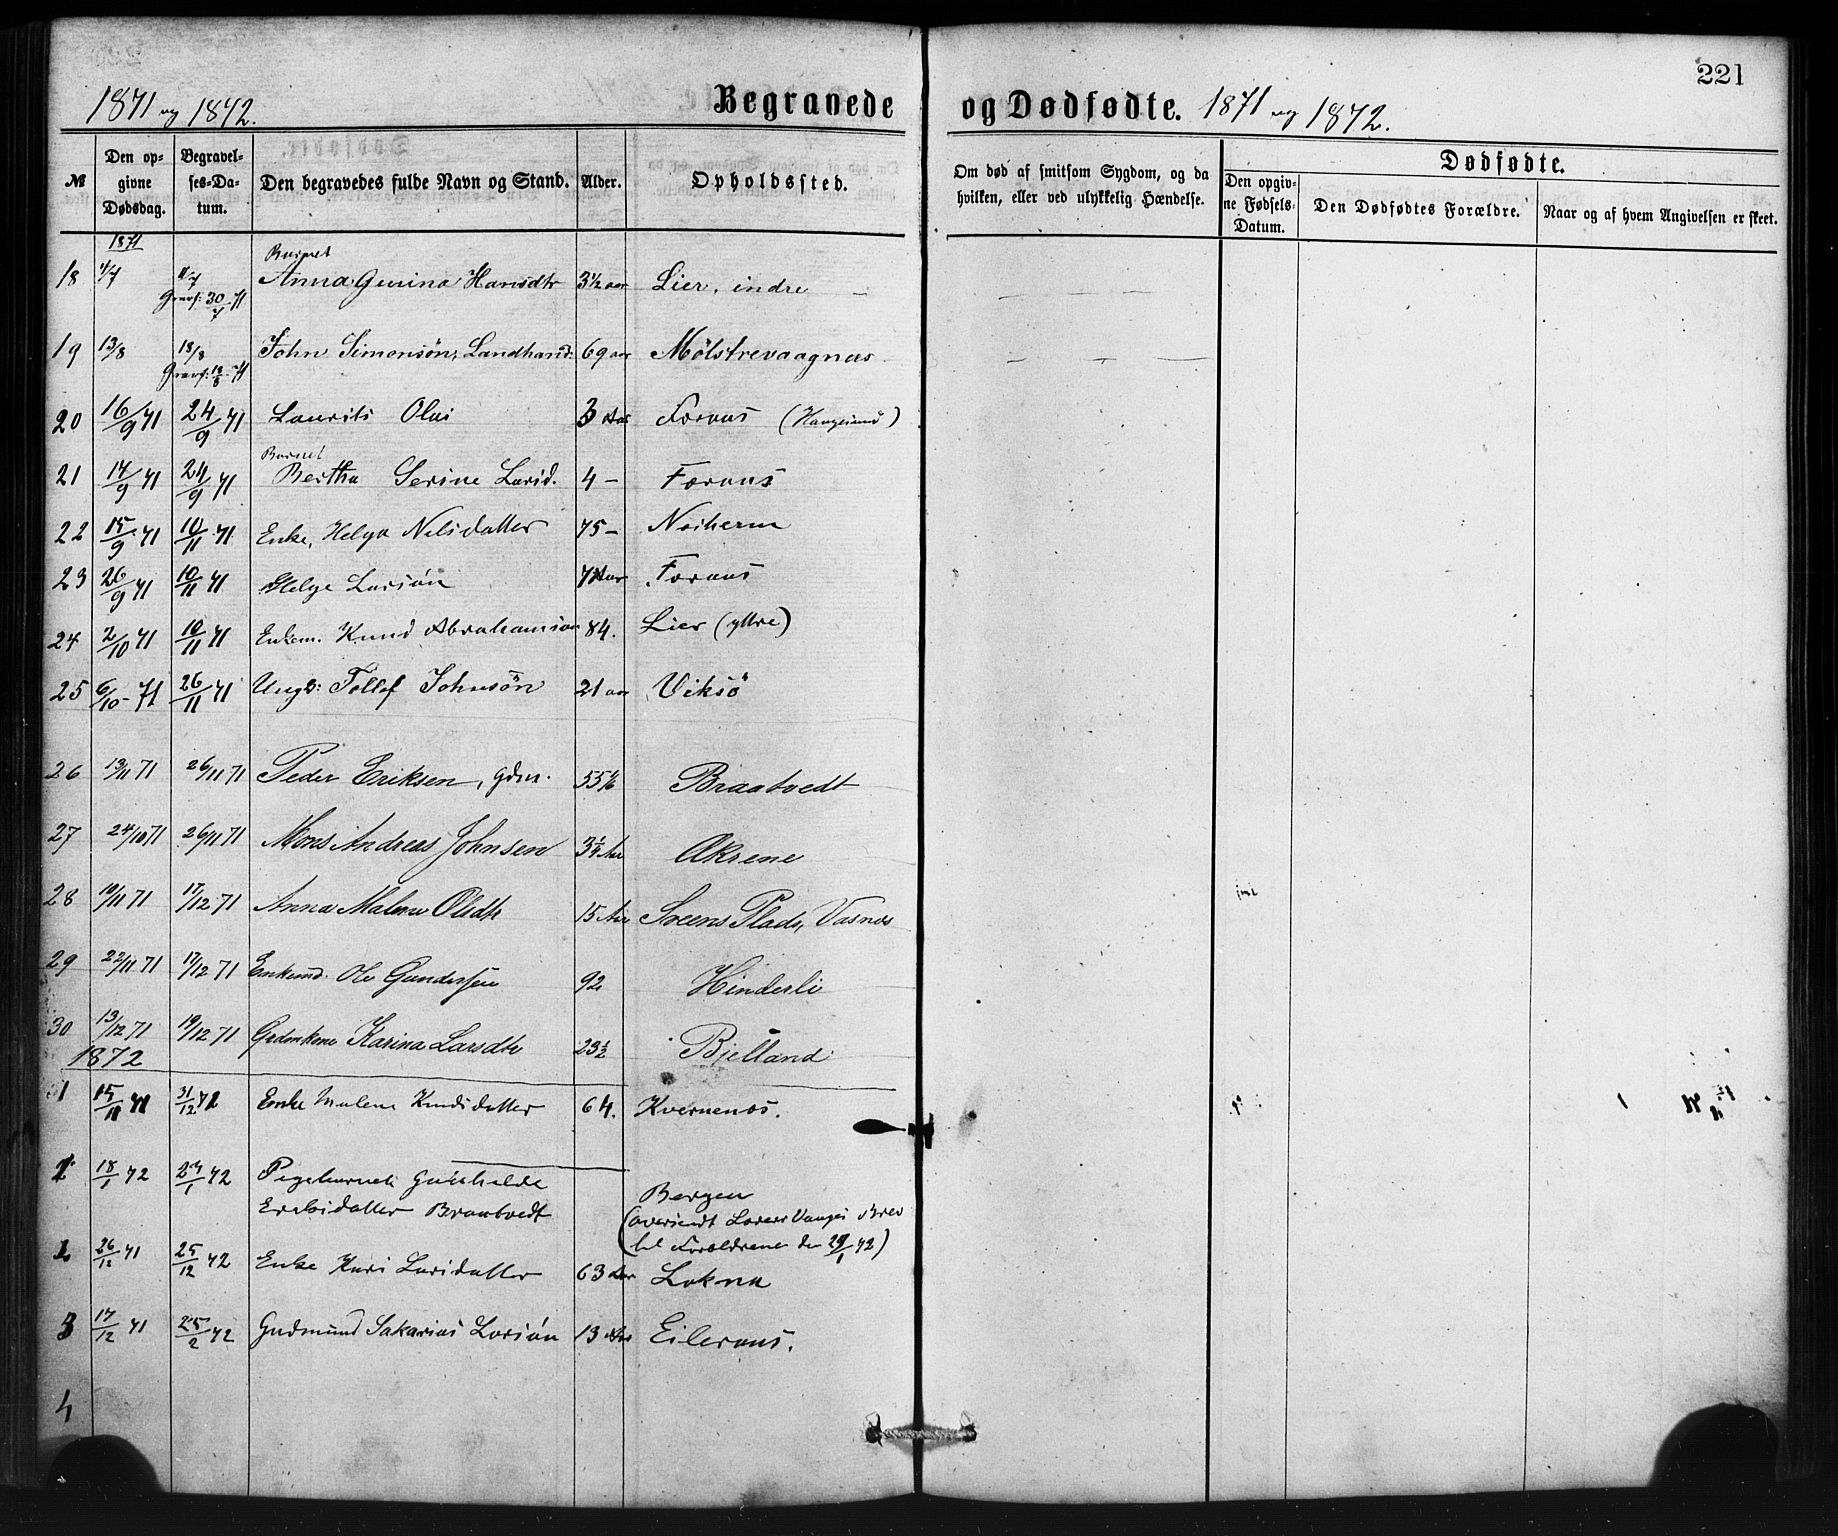 221
1871 og 1872. Begravede og Dødfødte. 1871 og 1872.
№ Den opgivne Dødsdag. Begravelses-Datum. Den begravedes fulde Navn og Stand. Alder. Opholdssted. Om død af smitsom Sygdom, og da hvilken, eller ved ulykkelig Hændelse. Dødfødte. Den opgivne Fødsels-Datum. Den Dødfødtes Forældre. Naar og af hvem Angivelsen er skeet.
1871
Barnet
18 4/7 11/7 Anna Gurina Hansdtr 3½ aar Lier, indre
Gravf: 30/7 71
19 13/8 18/8 John Simonsøn, Landhand: 69 aar Mølstrevaagnæs
Gravf: 18/8 71
20 16/9 71 24/9 71 Laurits Olai 3 Aar Føraas (Haugesund)
Barnet
21 14/9 71 24/9 71 Bertha Serine Larsd. 4 – Føraas
22 15/9 71 10/11 71 Enke, Helga Nilsdatter 75 –
23 26/9 71 10/11 71 Helge Larsøn 7 Aar Føraas
24 2/10 71 10/11 71 Enkem. Knud Abrahamsøn 84. Lier (yttre)
25 6/10 - 71 26/11 71 Ungk: Tollef Johnsøn 21 aar Viksø
26 13/11 71 26/11 71 Peder Eriksen, gdm. 55 Braatvedt
27 24/10 71 26/11 71 Mons Andreas Johnsen 3¼ Aar Akrene
28 19/11 71 17/12 71 Anna Malene Olsdtr 15 Aar Sveens Plads, Vasnæs
29 22/11 71 17/12 71 Enkemd. Ole Gundersen 92 Hinderli
30 13/12 71 19/12 71 Grdmkone Karina Larsdtr 23½ Bjelland
1872
31 15/11 71 31/12 72 Enke Malene Knudsdatter 64. Kvernenæs.
1 18/1 72 29/1 72 Pigebarnet Gunhilde
Eriksdatter Braatvedt Bergen
(oversendt Lærer Vanges Brev
til Forældrene den 29/1 72)
2 26/12 71 25/12 72 Enke Kari Larsdatter 63 Aar Lokna
3 17/12 71 25/2 72 Gudmund Sakarias Larsøn 13 Aar Eileraas.
4